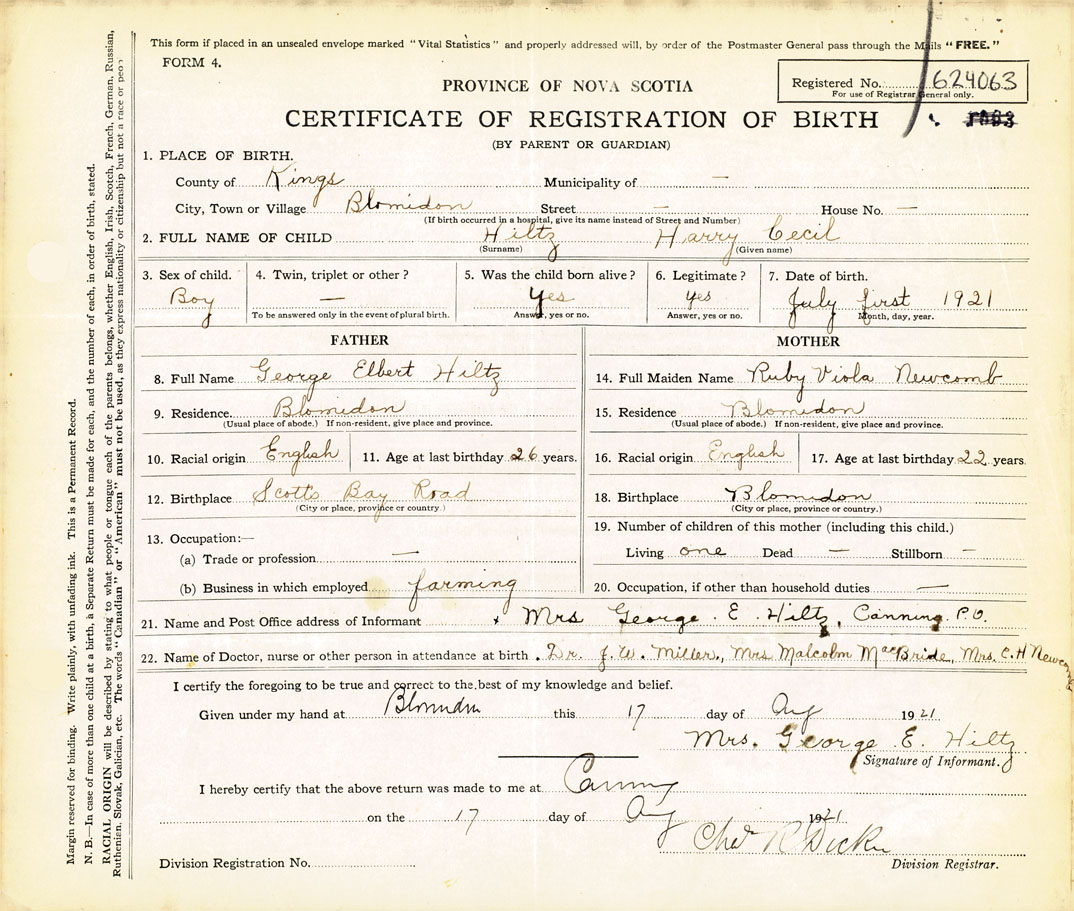 This form if placed in an unsealed envelope marked "Vital Statistics" and properly addressed will, by order of the Postmaster General pass through the Mails "FREE."
FORM 4.
PROVINCE OF NOVA SCOTIA
Registered No. 624063
For use of Registrar General only.
CERTIFICATE OF REGISTRATION OF BIRTH
(BY PARENT OR GUARDIAN)
1. PLACE OF BIRTH.
County of Kings Municipality of —
City, Town or Village Blomidon Street — House No. —
(If birth occurred in a hospital, give its name instead of Street and Number)
2. FULL NAME OF CHILD Hiltz Harry Cecil
(Surname) (Given name)
3. Sex of child. 4. Twin, triplet or other? 5. Was the child born alive? 6. Legitimate? 7. Date of birth.
Boy — Yes yes July first 1921
To be answered only in the event of plural birth. Answer, yes or no. Answer, yes or no. Month, day, year.
FATHER
8. Full Name George Elbert Hiltz
9. Residence. Blomidon
(Usual place of abode.) If non-resident, give place and province.
10. Racial origin English 11. Age at last birthday 26 years.
12. Birthplace Scotts Bay Road
(City or place, province or country.)
13. Occupation:—
(a) Trade or profession —
(b) Business in which employed farming
MOTHER
14. Full Maiden Name Ruby Viola Newcomb
15. Residence Blomidon
(Usual place of abode.) If non-resident, give place and province.
16. Racial origin English 17. Age at last birthday 22 years.
18. Birthplace Blomidon
(City or place, province or country.)
19. Number of children of this mother (including this child.)
Living one Dead — Stillborn —
20. Occupation, if other than household duties —
21. Name and Post Office address of Informant Mrs George E. Hiltz, Canning P.O.
22. Name of Doctor, nurse or other person in attendance at birth. Dr. J. W. Miller, Mrs Malcolm MacBride, Mrs. C. H Newcomb
I certify the foregoing to be true and correct to the best of my knowledge and belief.
Given under my hand at Blomidon this 17 day of Aug 1921
Mrs. George E. Hiltz
Signature of Informant.
I hereby certify that the above return was made to me at Canning
on the 17 day of Aug 1921
Chas R Dickie
Division Registrar.
Division Registration No.
Margin reserved for binding. Write plainly, with unfading ink. This is a Permanent Record.
N. B.—In case of more than one child at a birth, a Separate Return must be made for each, and the number of each, in order of birth, stated.
RACIAL ORIGIN will be described by stating to what people or tongue each of the parents belongs, whether English, Irish, Scotch, French, German, Russian,
Ruthenian, Slovak, Galician, etc. The words "Canadian" or "American" must not be used, as they express nationality or citizenship but not a race or peo